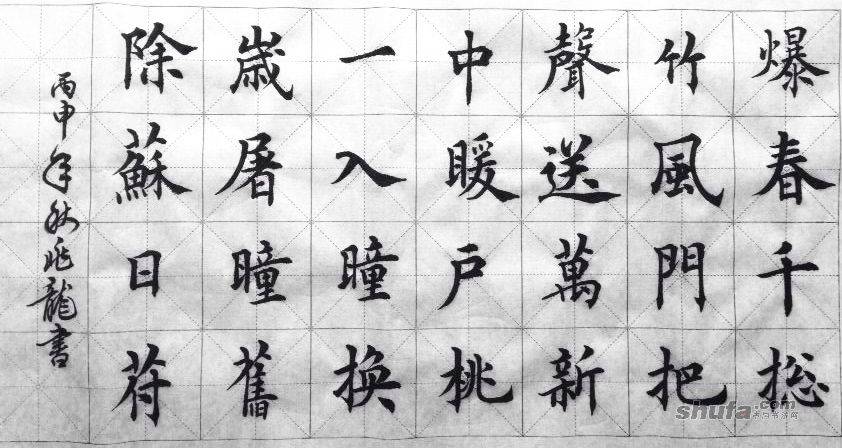 爆竹聲中一嵗除
春風送暖入屠蘇
千門萬戶瞳瞳日
捴把新桃換舊苻
丙申年秋兆龍書
shufa.com